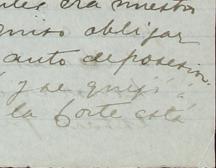 era nuestro
quiso obligar
auto deposesion
y se quejó á
la Corte está